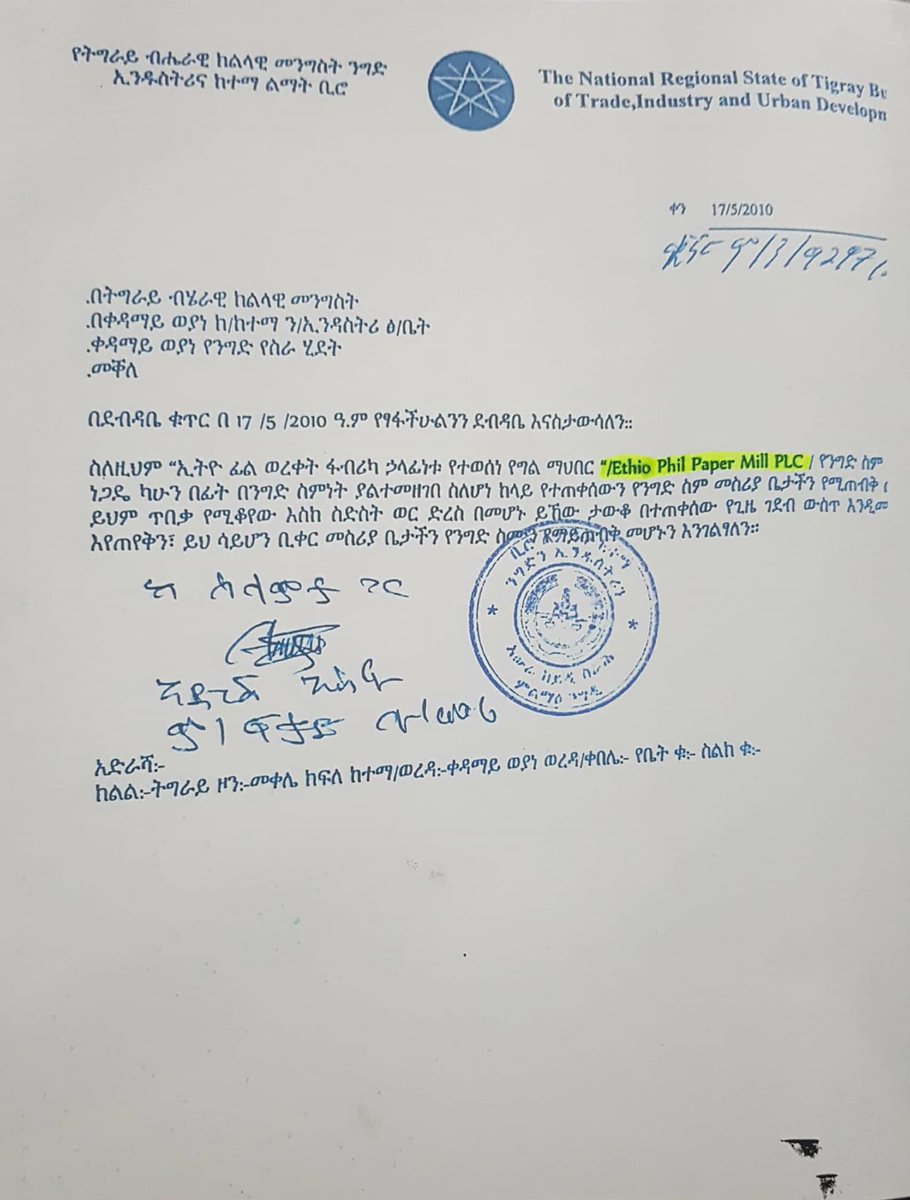 የትግራይ ብሔራዊ ክልላዊ መንግስት ንግድ
ኢንዱስትሪና ከተማ ልማት ቢሮ
The National Regional State of Tigray
of Trade,Industry and Urban
ቀን 17/5/2010
.በትግራይ ብሄራዊ ክልላዊ መንግስት
.በቀዳማይ ወያነ ክ/ከተማ ን/ኢንዳስትሪ ፅ/ቤት
.ቀዳማይ ወያነ የንግድ የስራ ሂደት
.መቐለ
በደብዳቤ ቁጥር በ 17 /5 /2010 ዓ.ም የፃፋችሁልንን ደብዳቤ እናስታውሳለን።
ስለዚህም “ኢትዮ ፊል ወረቀት ፋብሪካ ኃላፊነቱ የተወሰነ የግል ማህበር “/Ethio Phil Paper Mill PLC / የንግድ ስም
ነጋዴ ካሁን በፊት በንግድ ስምነት ያልተመዘገበ ስለሆነ ከላይ የተጠቀሰውን የንግድ ስም መስሪያ ቤታችን የሚጠብቅ
ይህም ጥበቃ የሚቆየው እስከ ስድስት ወር ድረስ በመሆኑ ይኸው ታውቆ በተጠቀሰው የጊዜ ገደብ ውስጥ
እየጠየቅን፣ ይህ ሳይሆን ቢቀር መስሪያ ቤታችን የንግድ ስሙን የማይጠብቅ መሆኑን እንገልፃለን።
ከ ሰላምታ ጋር
አድራሻ:-
ክልል:-ትግራይ ዞን:-መቀሌ ክፍለ ከተማ/ወረዳ:-ቀዳማይ ወያነ ወረዳ/ቀበሌ:- የቤት ቁ:- ስልክ ቁ:-